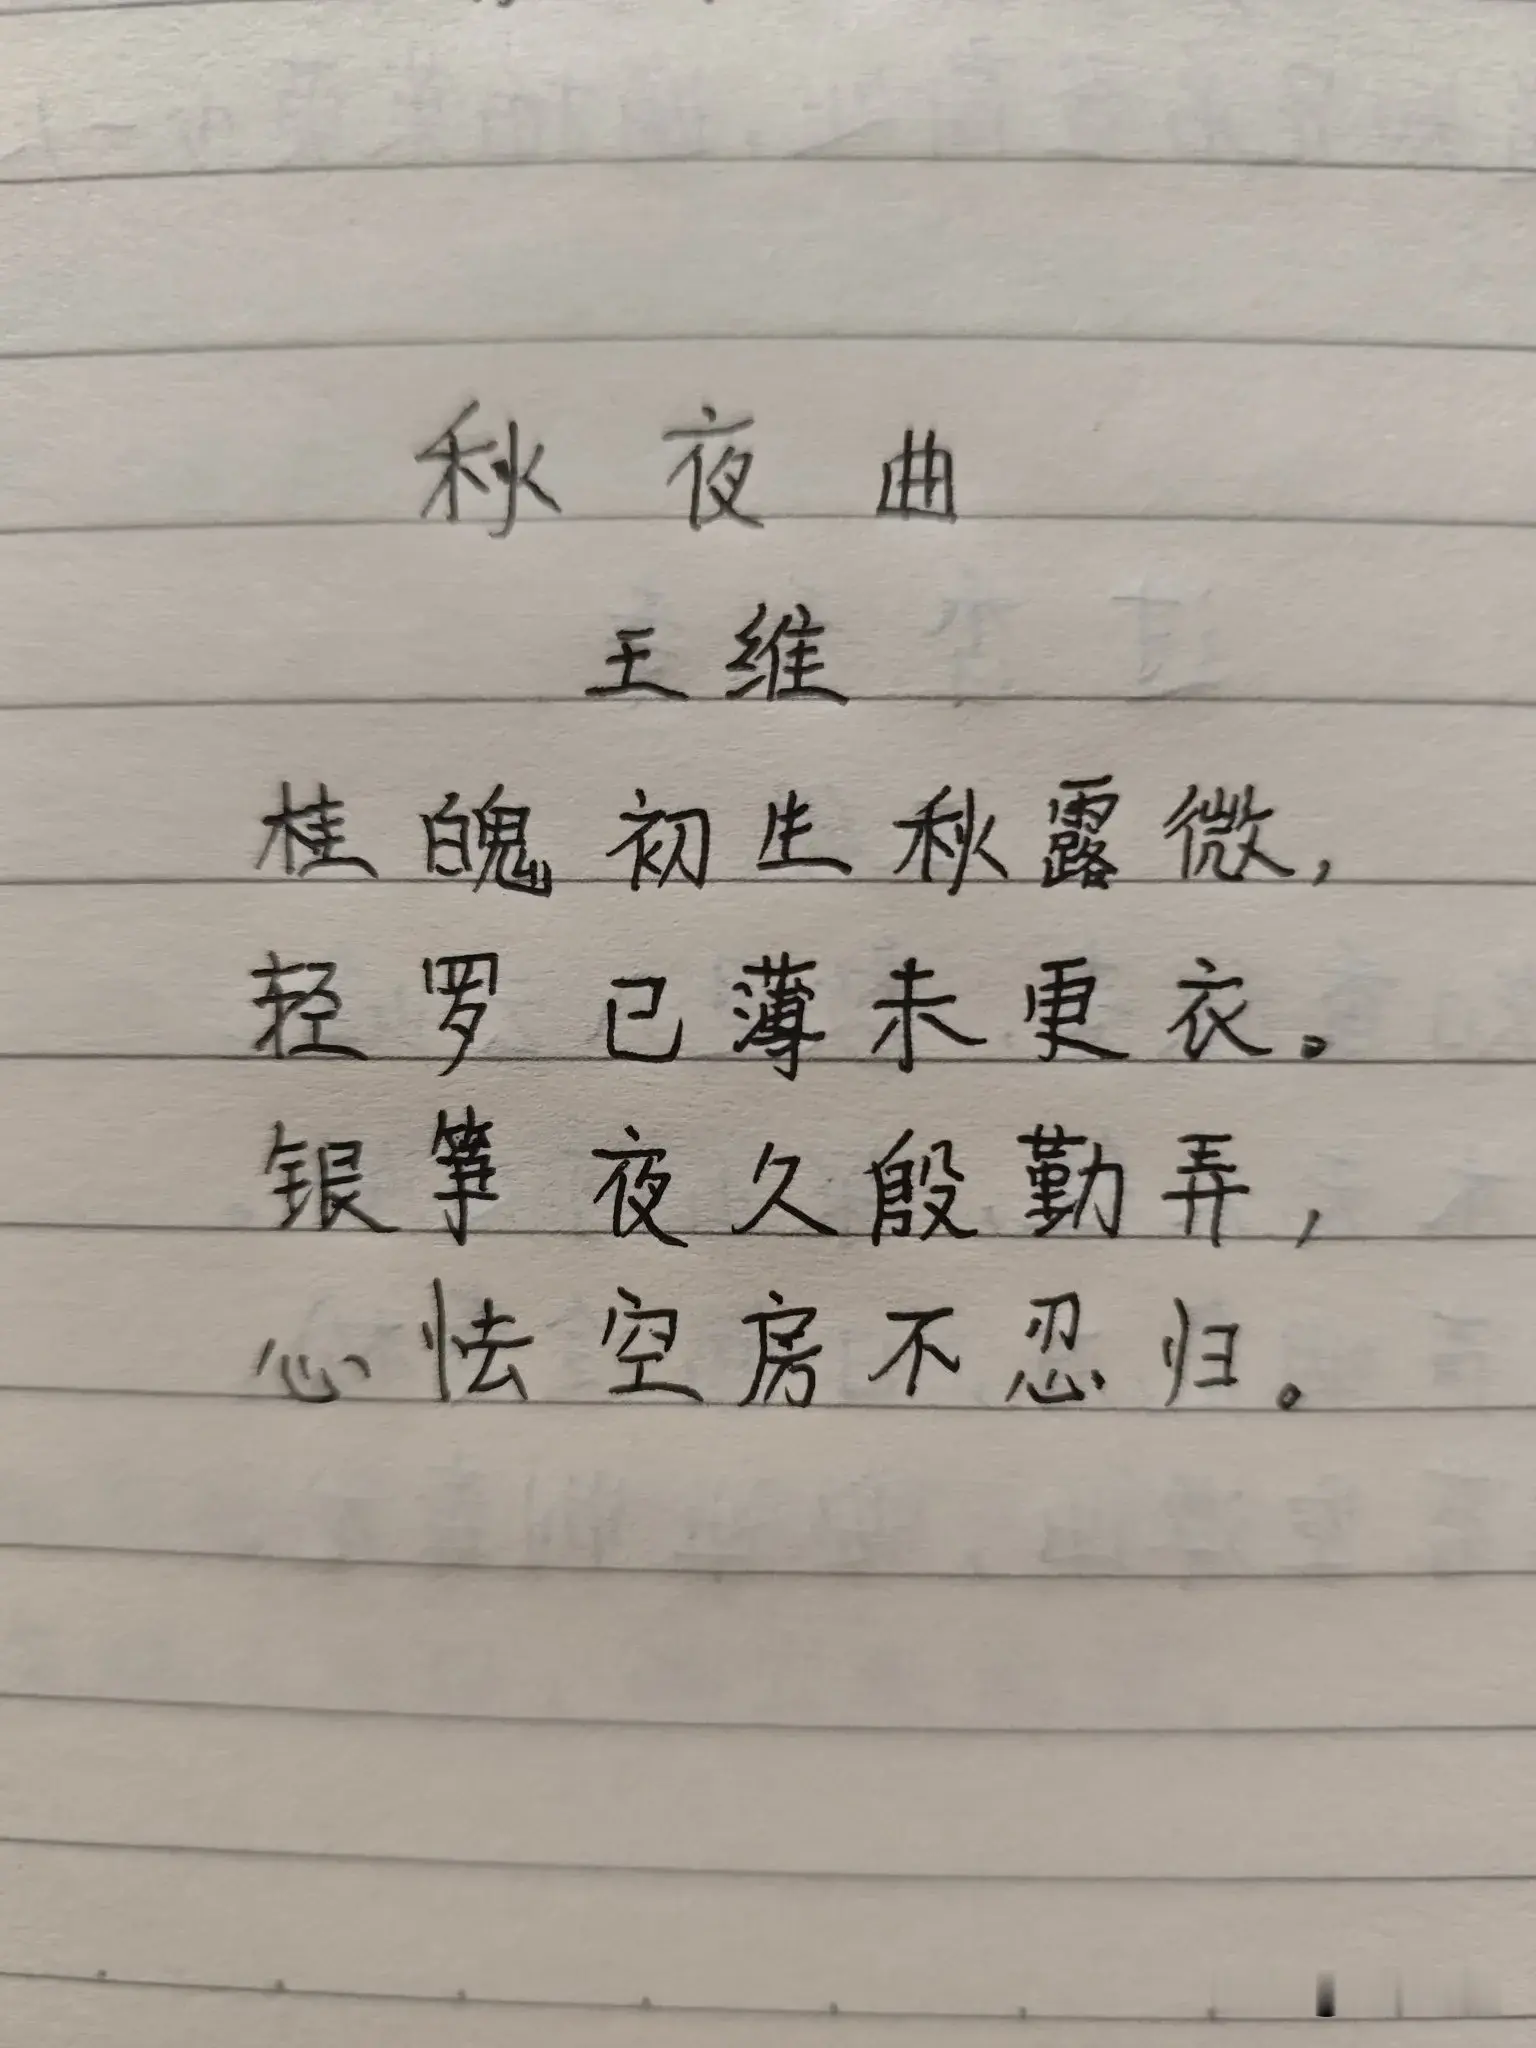 秋夜曲
王维
桂魄初生秋露微，
轻罗已薄未更衣。
银筝夜久殷勤弄，
心怯空房不忍归。